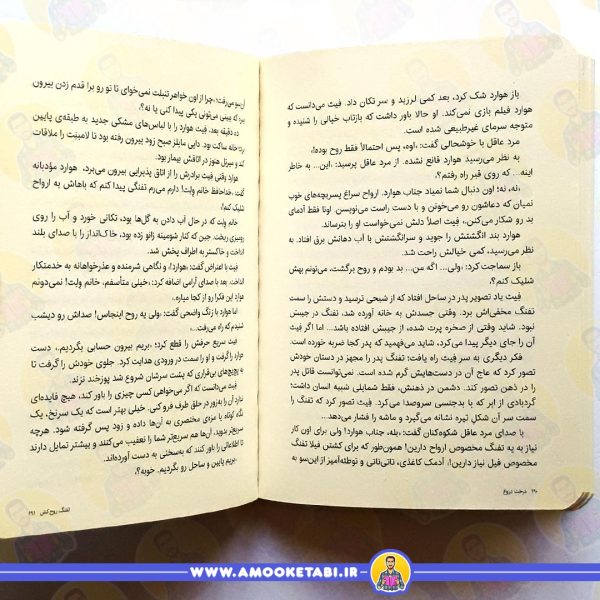 باز هوارد شک کرد، بعد کمی لرزید و سر تکان داد. فیث می‌دانست که
هوارد فیلم بازی نمی‌کند. او حالا باور داشت که بازتاب خیالی را شنیده و
متوجه سرمای غیرطبیعی شده است.
مرد عاقل با خوشحالی گفت: «اوه، پس احتمالاً فقط روح بوده!»
به نظر می‌رسید هوارد قانع نشده. از مرد عاقل پرسید: «این... به خاطر
اینه... که روی قبر راه رفتم؟»
«نه، نه! اون دنبال شما نمیاد جناب هوارد. ارواح سراغ پسربچه‌های خوب
نمیان که دعاشون رو می‌خونن و با دست راست می‌نویسن. اونا فقط آدمای
بد رو شکار می‌کنن.» فیث اصلاً دلش نمی‌خواست او را بترساند.
هوارد بند انگشتش را جوید و سرانگشتش با آب دهانش برق افتاد. به
نظر می‌رسید، کمی خیالش راحت شد.
باز سماجت کرد: «ولی... اگه من... بد بودم و روح برگشت، می‌تونم بهش
شلیک کنم؟»
فیث یاد تصویر پدر در ساحل افتاد که از شبحی ترسید و دستش را سمت
تفنگ مخفی‌اش برد. وقتی جسدش به خانه آورده شد، تفنگ در جیبش
نبود. شاید وقتی از صخره پرت شده، از جیبش افتاده باشد... اما اگر فیث
آن را جای دیگر پیدا می‌کرد، شاید می‌فهمید که پدر کجا ضربه خورده است.
فکر دیگری به سر فیث راه یافت: تفنگ پدر را مجهز در دستان خودش
تصور کرد که عاج آن در دست‌هایش گرم شده است. نمی‌توانست قاتل پدر
را در ذهن تصور کند. دشمن در ذهنش، فقط شمایلی شبیه انسان داشت؛
گردبادی از ابر که با بدجنسی سروصدا می‌کرد. فیث تصور کرد که تفنگ را
سمت سر آن شکل تیره نشانه می‌گیرد و ماشه را فشار می‌دهد...
با صدای مرد عاقل شکوه‌کنان گفت: «بله، جناب هوارد! ولی برای اون کار
نیاز به یه تفنگ مخصوص ارواح دارین! همون‌طور که برای کشتن فیلا تفنگ
مخصوص فیل نیاز دارین!» آدمک کاغذی، تاتی‌تاتی و توطئه‌آمیز از این‌سو به
۱۹۰ درخت دروغ
آن‌سو می‌رفت: «چرا از اون خواهر تنبلت نمی‌خوای تا تو رو برا قدم زدن بیرون
ببره که ببینی می‌تونی یکی پیدا کنی یا نه؟»
ده دقیقه بعد، فیث هوارد را با لباس‌های مشکی جدید به طبقه‌ی پایین
برد؛ خانه ساکت بود. دایی مایلز صبح زود بیرون رفته بود تا لامبنت را ملاقات
کند و میرتل هنوز در اتاقش بیمار بود.
هوارد وقتی فیث برادرش را از اتاق پذیرایی بیرون می‌برد، هوارد مؤدبانه
گفت: «خداحافظ خانم ولِت! دارم می‌رم تفنگی پیدا کنم که باهاش به ارواح
شلیک کنم!»
خانم ولِت، که در حال آب دادن به گل‌ها بود، تکانی خورد و آب را روی
رومیزی ریخت. جین که کنار شومینه زانو زده بود، خاک‌انداز را با صدای بلند
انداخت و خاکستر به اطراف پخش شد.
فیث با اعتراض گفت: «هوارد!» و نگاهی شرمنده و عذرخواهانه به خدمتکار
انداخت. بعد با صدای آرامی اضافه کرد: «خیلی متأسفم، خانم ولِت! نمی‌دونم
هوارد این فکرا رو از کجا میاره.»
اما هوارد با زنگ واضحی گفت: «ولی یه روح اینجاس! صداش رو دیشب
شنیدم که راه می‌رفت...»
فیث سریع حرفش را قطع کرد: «بریم بیرون حسابی بگردیم.» دست
هوارد را گرفت و او را سمت در ورودی هدایت کرد. جلوی خودش را گرفت تا
به پچ‌پچ‌های بی‌قراری که پشت سرشان شروع شد پوزخند نزند.
فیث می‌دانست که اگر می‌خواهی کسی چیزی را باور کند، هیچ فایده‌ای
ندارد آن را به‌زور در حلق طرف فرو کنی. خیلی بهتر است که یک سرنخ، یک
نگاه کوتاه یا مزه‌ی مختصری به آن‌ها داده و زود پس گرفته شود. هرچه
سریع‌تر بدوید، آن‌ها هم سریع‌تر شما را تعقیب می‌کنند و بیشتر تمایل دارند
تا اطلاعاتی را باور کنند که به‌سختی به دست آورده‌اند.
«بریم پایین و ساحل رو بگردیم. خوبه؟»
تفنگ روح‌کش ۱۹۱
WWW.AMOOKETABI.IR